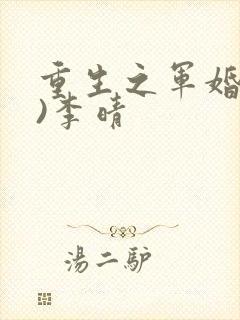 重生之军婚
)李晴
湯二驴